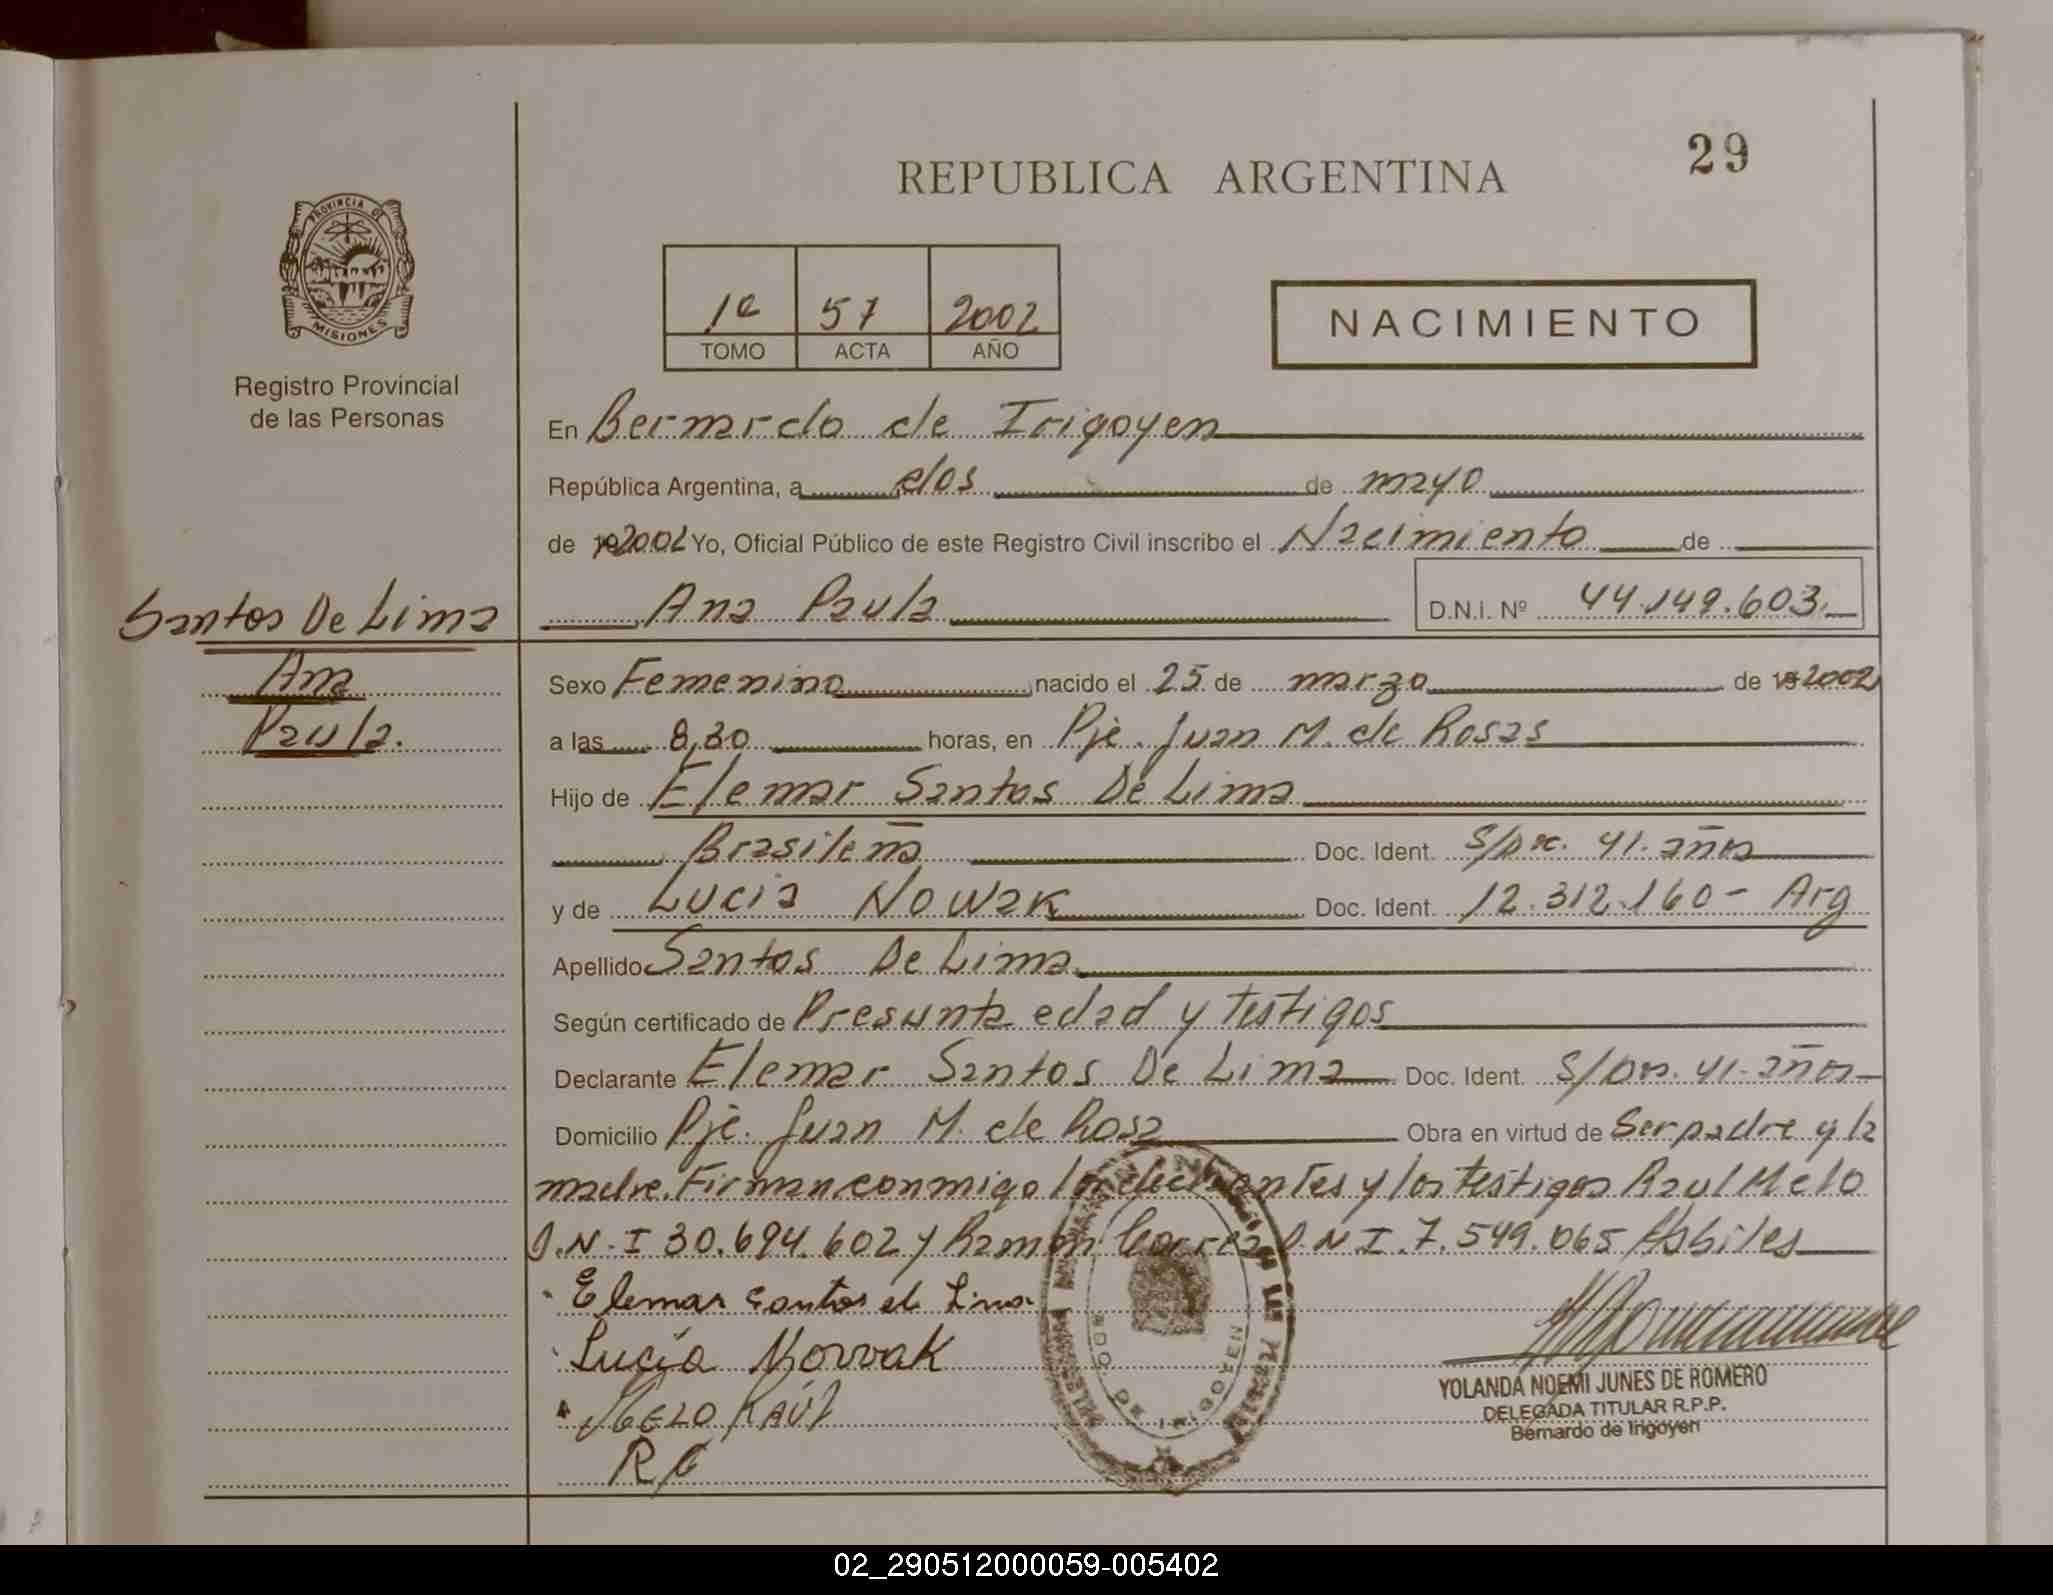 29
REPUBLICA ARGENTINA
PROVINCIA DE
MISIONES
Registro Provincial
de las Personas
1º 57 2002
TOMO ACTA AÑO
NACIMIENTO
En Bernardo de Irigoyen
República Argentina, a dos de mayo
de 19 2002 Yo, Oficial Público de este Registro Civil inscribo el Nacimiento de
Ana Paula D.N.I. Nº 44.149.603.
Santos De Lima
Ana
Paula.
Sexo Femenino nacido el 25 de marzo de 19 2002
a las 8,30 horas, en Pje. Juan M. de Rosas
Hijo de Elemar Santos De Lima
Brasileña Doc. Ident. S/Doc. 41. años
y de Lucia Nowak Doc. Ident. 12.312.160 - Arg
Apellido Santos De Lima
Según certificado de Presunta edad y testigos
Declarante Elemar Santos De Lima Doc. Ident. S/Doc. 41. años
Domicilio Pje. Juan M. de Rosa Obra en virtud de Ser padre y la
madre. Firman conmigo los declarantes y los testigos Raul Melo
D.N.I 30.694.602 y Ramón Correa D.N.I. 7.549.065 Habiles
Elemar Santos de Lima
Lucía Novvak
MELO RAÚL
R C
BDO. DE IRIGOYEN
YOLANDA NOEMI JUNES DE ROMERO
DELEGADA TITULAR R.P.P.
Bernardo de Irigoyen
02_290512000059-005402